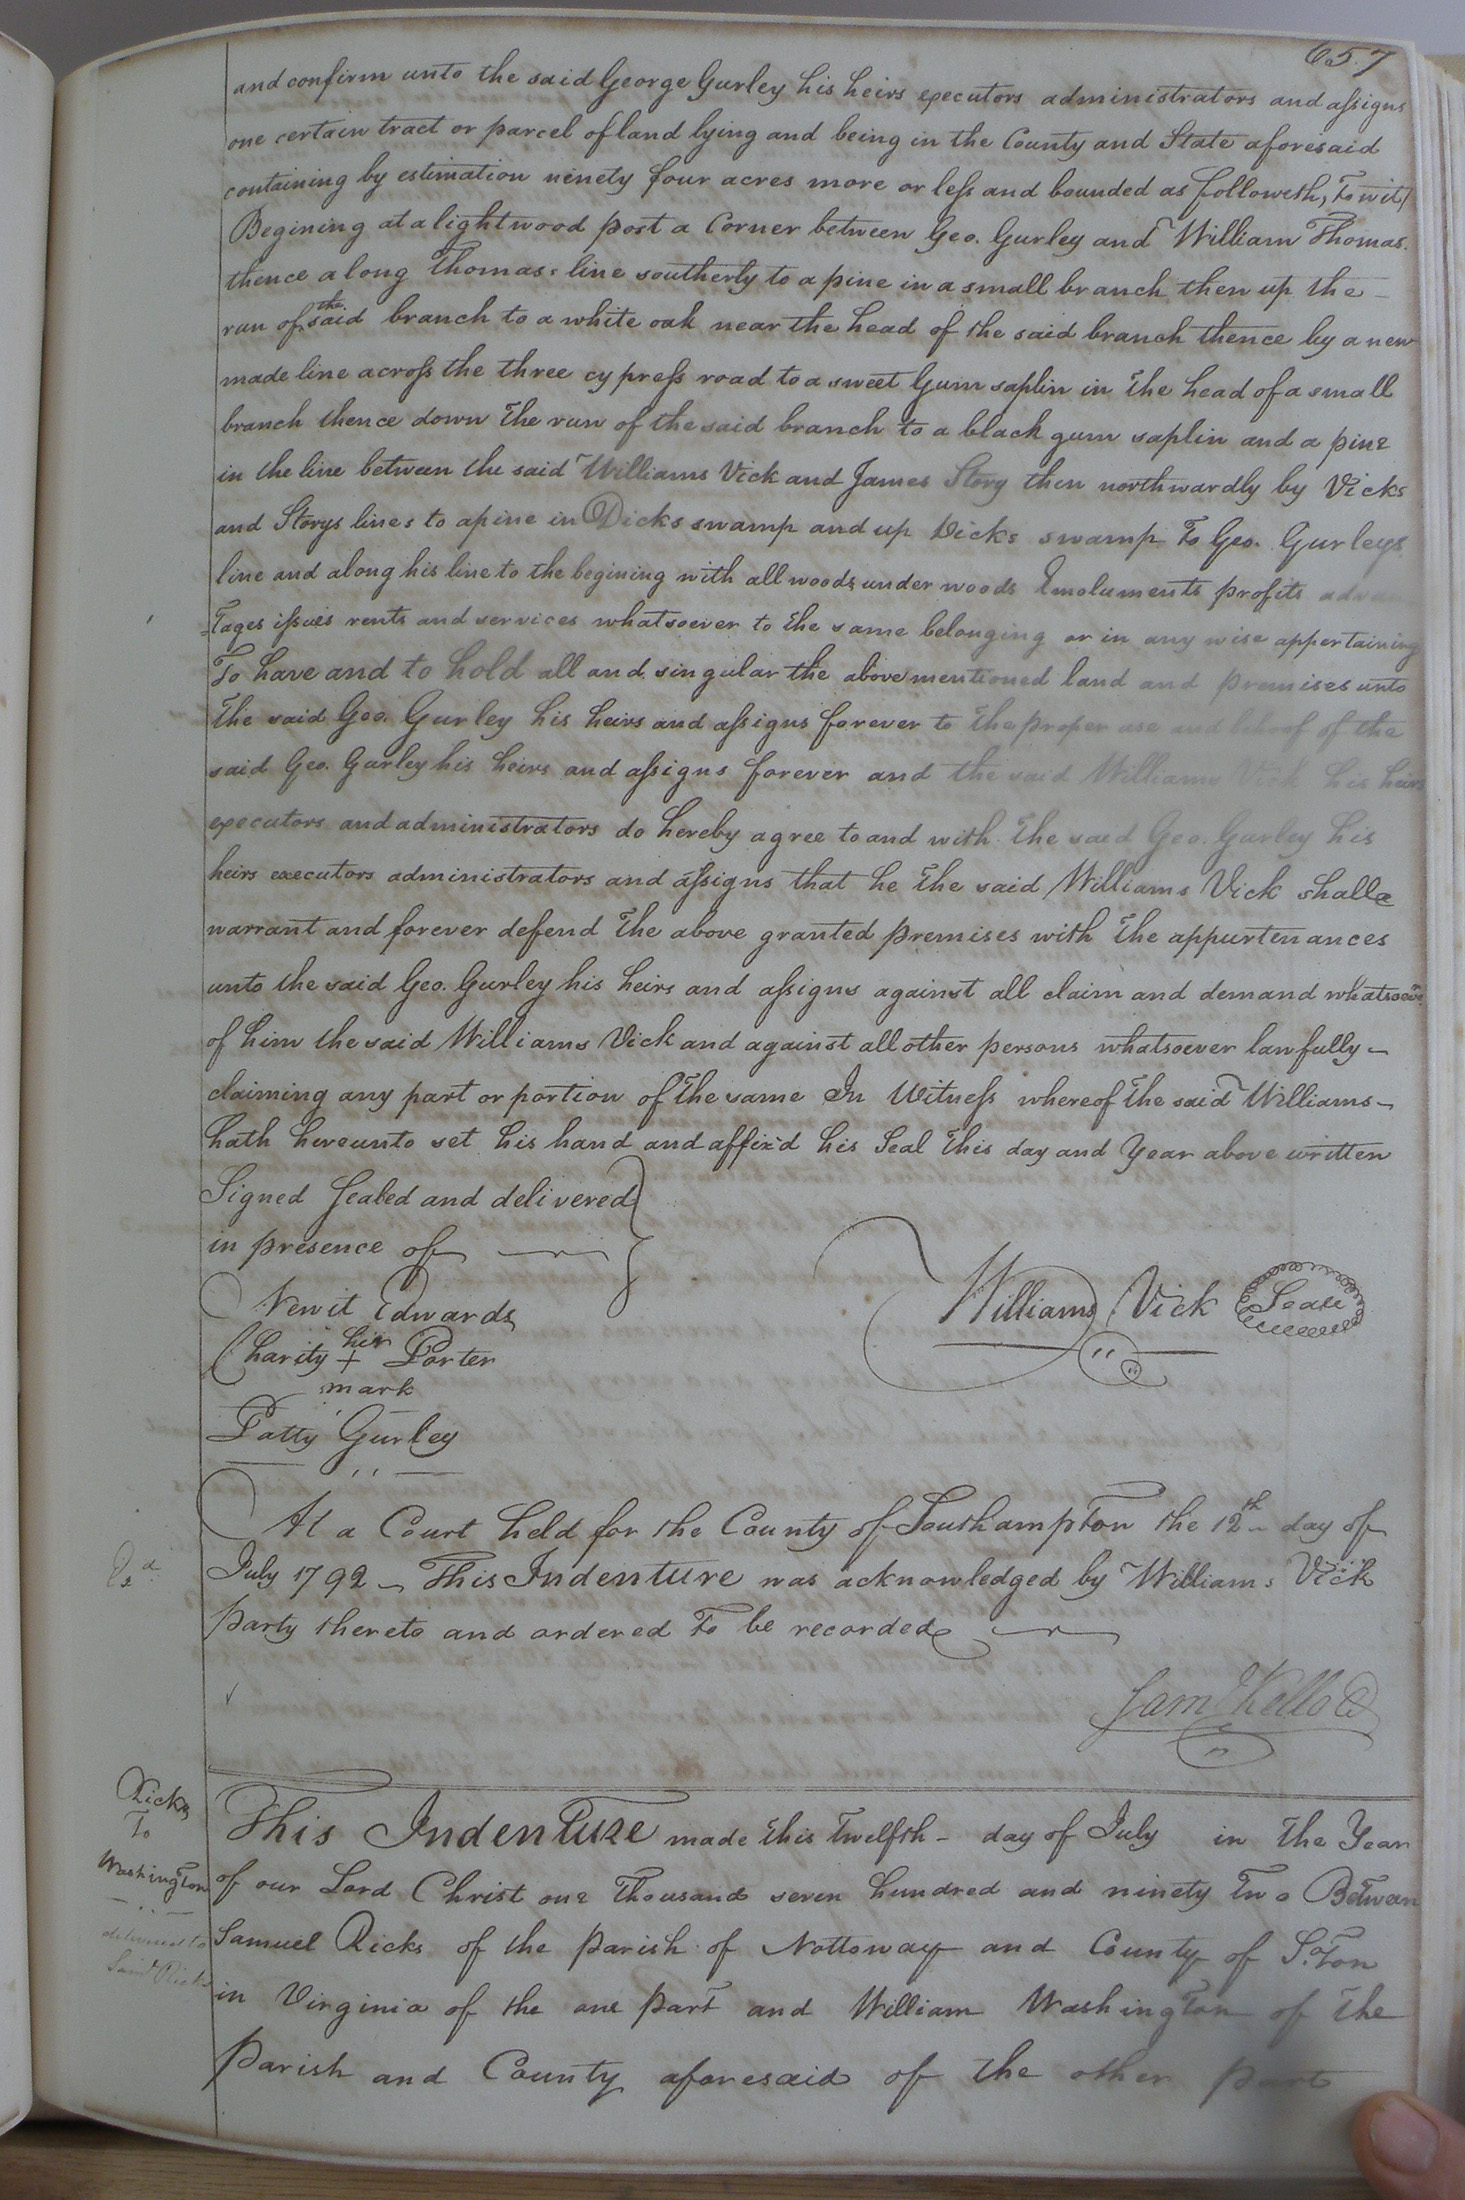 657
and confirm unto the said George Gurley his heirs executors administrators and assigns
one certain tract or parcel of land lying and being in the County and State aforesaid
containing by estimation ninety four acres more or less and bounded as followeth, to wit/
Begining at a lightwood post a Corner between Geo. Gurley and William Thomas.
thence along Thomas's line southerly to a pine in a small branch then up the
run of the said branch to a white oak near the head of the said branch thence by a new
made line across the three cypress road to a sweet Gum saplin in the head of a small
branch thence down the run of the said branch to a black gum saplin and a pine
in the line between the said Williams Vick and James Story then northwardly by Vicks
and Storys lines to a pine in Dicks swamp and up Dicks swamp to Geo. Gurleys
line and along his line to the begining with all woods under woods Emoluments profits advan
=tages issues rents and services whatsoever to the same belonging or in any wise appertaining
To have and to hold all and singular the above mentioned land and premises unto
the said Geo. Gurley his heirs and assigns forever to the proper use and behoof of the
said Geo. Gurley his heirs and assigns forever and the said Williams Vick his heirs
executors and administrators do hereby agree to and with the said Geo. Gurley his
heirs executors administrators and assigns that he the said Williams Vick shall
warrant and forever defend the above granted premises with the appurtenances
unto the said Geo. Gurley his heirs and assigns against all claim and demand whatsoever
of him the said Williams Vick and against all other persons whatsoever lawfully
claiming any part or portion of the same In Witness whereof the said Williams
hath hereunto set his hand and affix'd his Seal this day and Year above written
Signed Sealed and delivered
in presence of
Newit Edwards
Williams Vick Seal
Charity her + Porter
mark
Patty Gurley
At a Court held for the County of Southampton the 12th day of
July 1792 This Indenture was acknowledged by Williams Vick
Party thereto and ordered to be recorded
Saml Kello
Ricks
To
Washington
This Indenture made this twelfth day of July in the Year
of our Lord Christ one Thousand seven hundred and ninety Two Between
Samuel Ricks of the Parish of Nottoway and County of S.oTon
delivered to
Saml Ricks
in Virginia of the one Part and William Washington of the
Parish and County aforesaid of the other Part